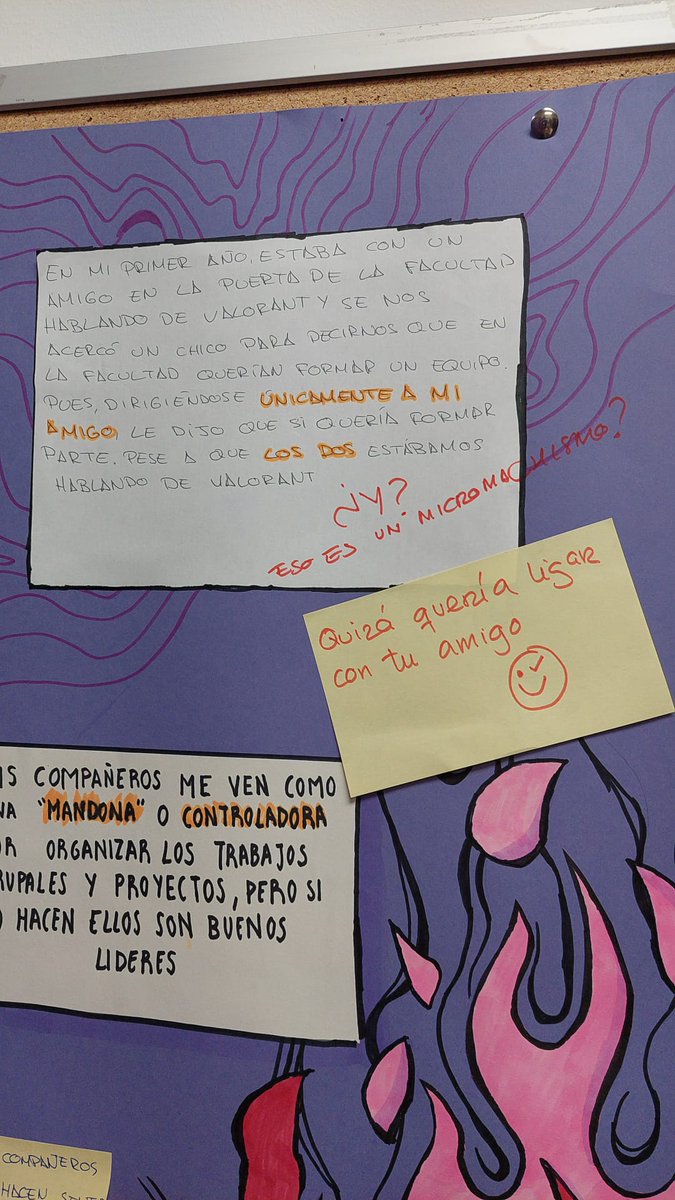 EN MI PRIMER AÑO, ESTABA CON UN
AMIGO EN LA PUERTA DE LA FACULTAD
HABLANDO DE VALORANT Y SE NOS
ACERCÓ UN CHICO PARA DECIRNOS QUE EN
LA FACULTAD QUERÍAN FORMAR UN EQUIPO.
PUES, DIRIGIÉNDOSE ÚNICAMENTE A MI
AMIGO, LE DIJO QUE SI QUERÍA FORMAR
PARTE. PESE A QUE LOS DOS ESTÁBAMOS
HABLANDO DE VALORANT
¿¡Y?
ESO ES UN MICROMACHISMO?
Quizá quería ligar
con tu amigo
IS COMPAÑEROS ME VEN COMO
NA "MANDONA" O CONTROLADORA
OR ORGANIZAR LOS TRABAJOS
RUPALES Y PROYECTOS, PERO SI
O HACEN ELLOS SON BUENOS
LIDERES
COMPAÑEROS
HACEN